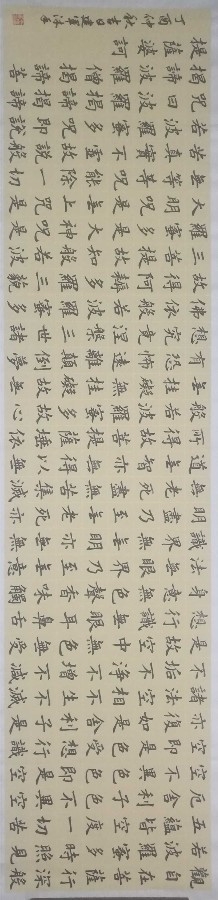 觀自在菩薩行深般
若波羅蜜多時照見
五蘊皆空度一切苦
厄舍利子色不異空
空不異色色即是空
空即是色受想行識
亦復如是舍利子是
諸法空相不生不滅
不垢不淨不增不減
是故空中無色無受
想行識無眼耳鼻舌
身意無色聲香味觸
法無眼界乃至無意
識界無無明亦無無
明盡乃至無老死亦
無老死盡無苦集滅
道無智亦無得以無
所得故菩提薩埵依
般若波羅蜜多故心
無罣礙無罣礙故無
有恐怖遠離顛倒夢
想究竟涅槃三世諸
佛依般若波羅蜜多
故得阿耨多羅三藐
三菩提故知般若波
羅蜜多是大神咒是
大明咒是無上咒是
無等等咒能除一切
苦真實不虛故說般
若波羅蜜多咒即說
咒曰揭諦揭諦波羅
揭諦波羅僧揭諦菩
提薩婆訶
丁酉仲秋吉日建軍沐手